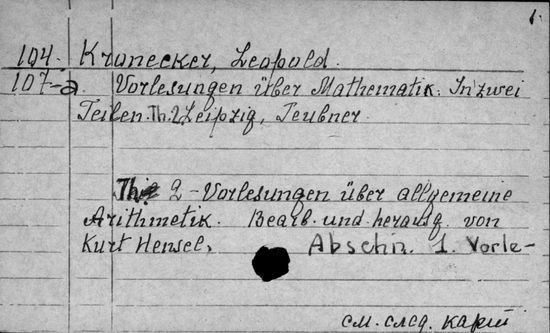 1.
104. Kronecker, Leopold.
107-a Vorlesungen über Mathematik. In zwei
Teilen. Th. 2. Leipzig, Teubner.
Th. 2 - Vorlesungen über allgemeine
Arithmetik. Bearb. und herausg. von
Kurt Hensel,
Abschn. 1. Vorle-
см. след. карт